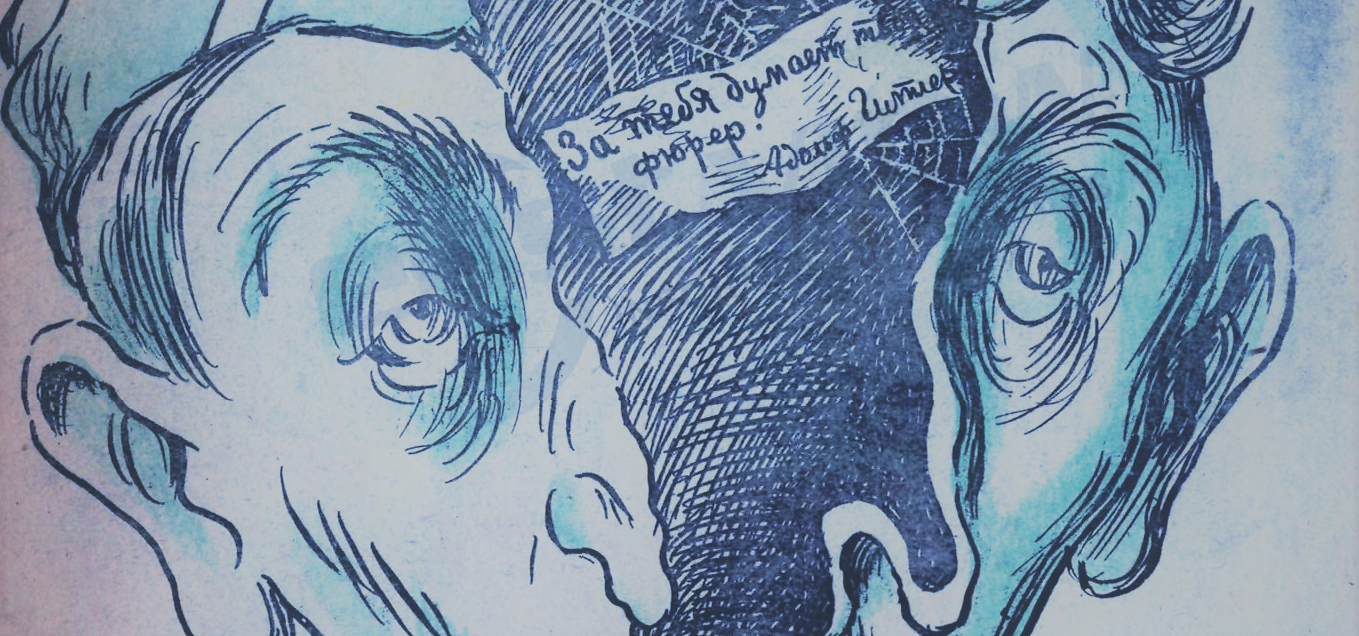 За тебя думает т
фюрер.
Адольф Гитлер